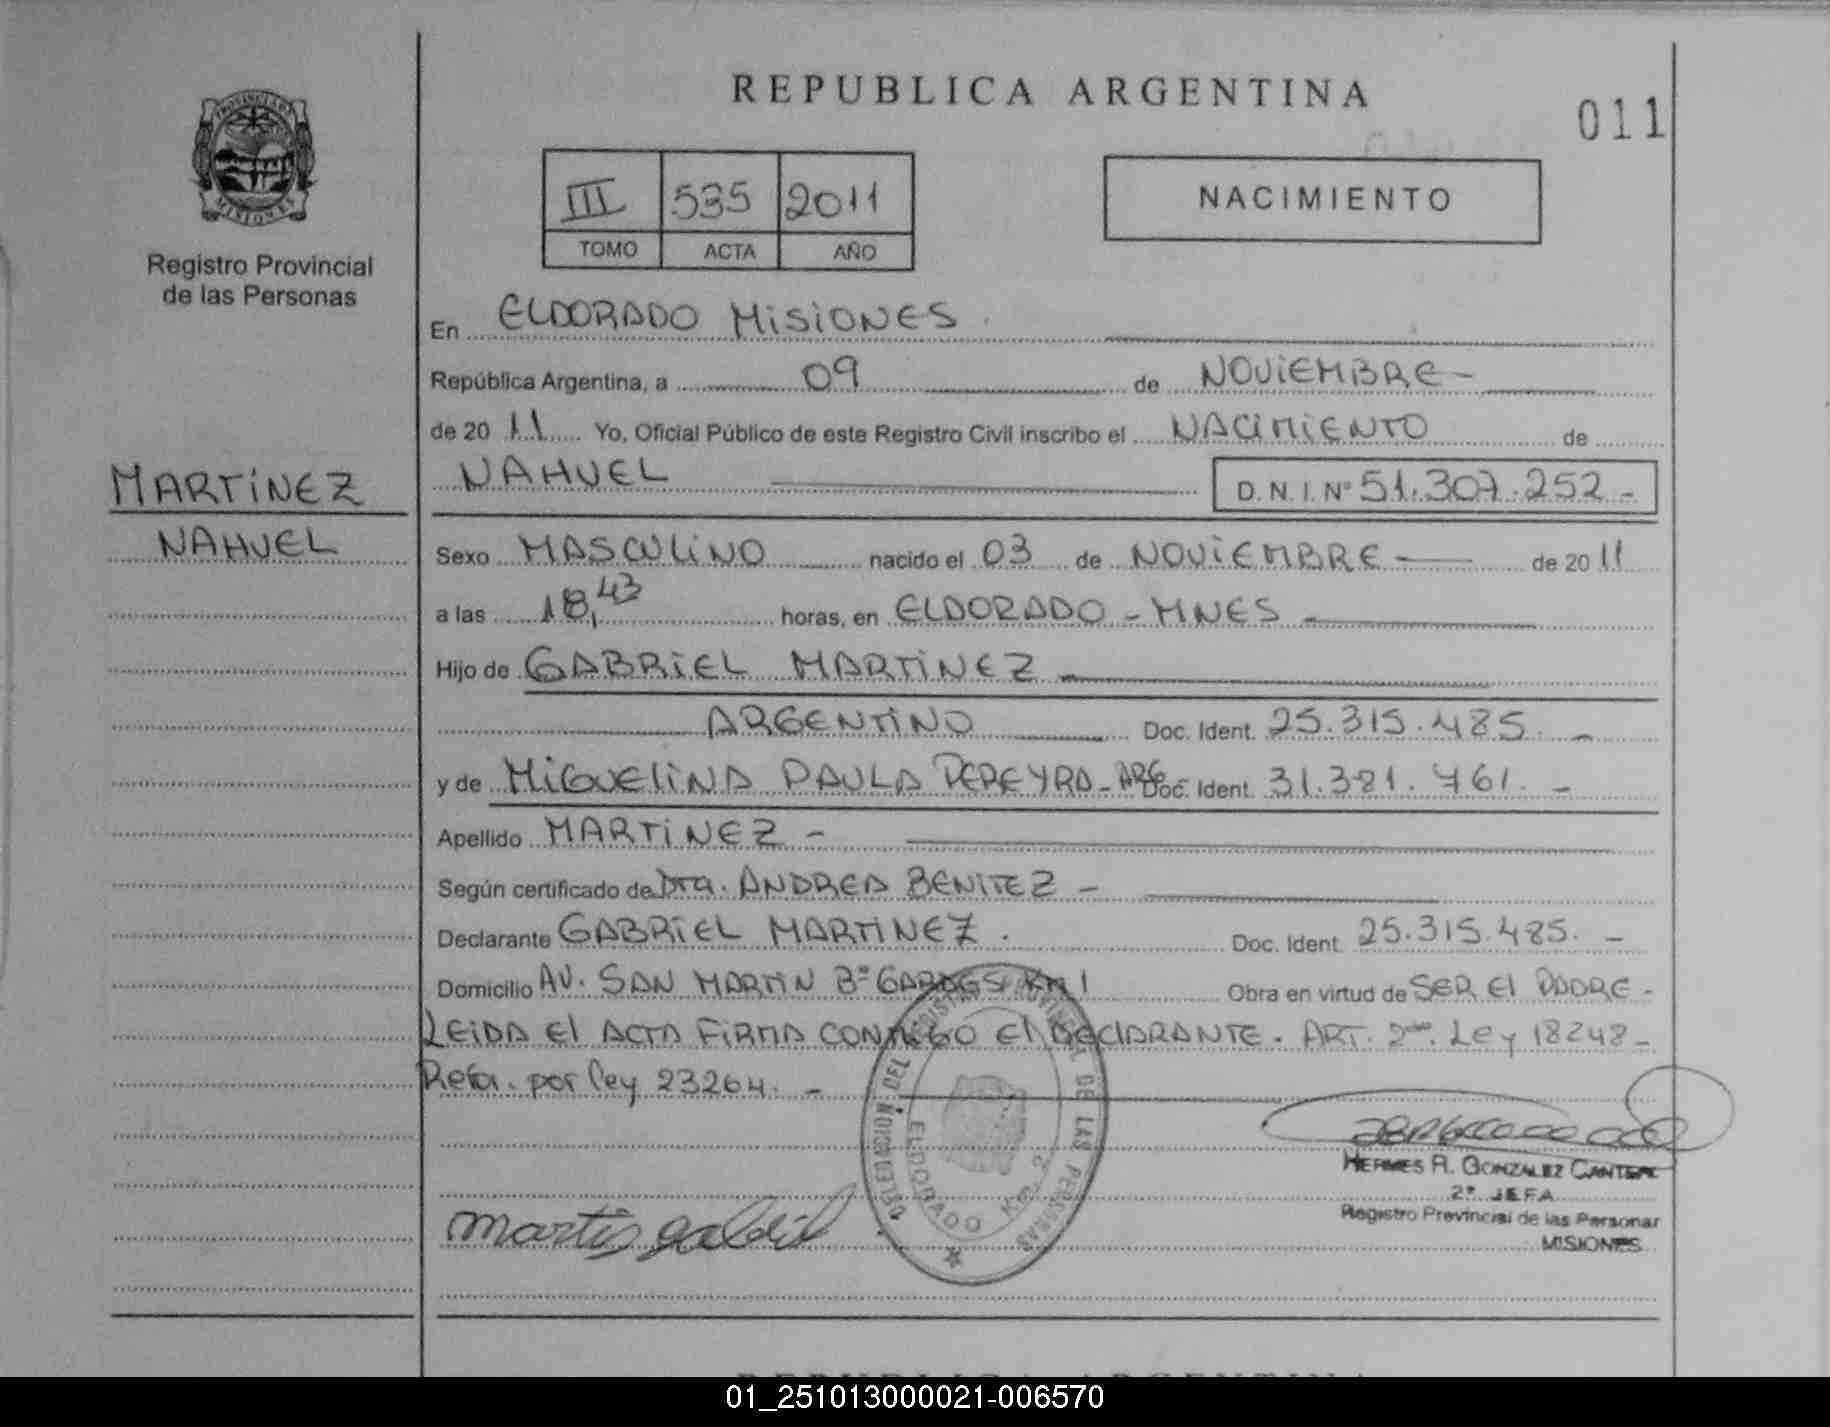 REPUBLICA ARGENTINA
011
PROVINCIA DE MISIONES
Registro Provincial
de las Personas
III 535 2011
TOMO ACTA AÑO
NACIMIENTO
En ELDORADO MISIONES.
República Argentina, a 09 de NOVIEMBRE -
de 20 11 Yo, Oficial Público de este Registro Civil inscribo el NACIMIENTO de
NAHUEL D.N.I. Nº 51.307.252 -
MARTINEZ
NAHUEL
Sexo MASCULINO nacido el 03 de NOVIEMBRE — de 20 11
a las 18,43 horas, en ELDORADO - MNES -
Hijo de GABRIEL MARTINEZ -
ARGENTINO Doc. Ident. 25.315.485. -
y de MIGUELINA PAULA PEREYRA - ARG Doc. Ident. 31.381.761. -
Apellido MARTINEZ -
Según certificado de Dra. ANDREA BENITEZ -
Declarante GABRIEL MARTINEZ. Doc. Ident. 25.315.485. -
Domicilio AV. SAN MARTIN Bº KM 1 Obra en virtud de SER El PADRE -
LEIDA El ACTA FIRMA CONMIGO El DECLARANTE. ART. 2do. Ley 18248 -
Refa. por ley 23264. -
DELEGACION DEL REGISTRO PROVINCIAL DE LAS PERSONAS
ELDORADO Km. 2
martis gabriel
HERMES R. GONZALEZ CANTERO
2º JEFA
Registro Provincial de las Personas
MISIONES
REPUBLICA ARGENTINA
01_251013000021-006570